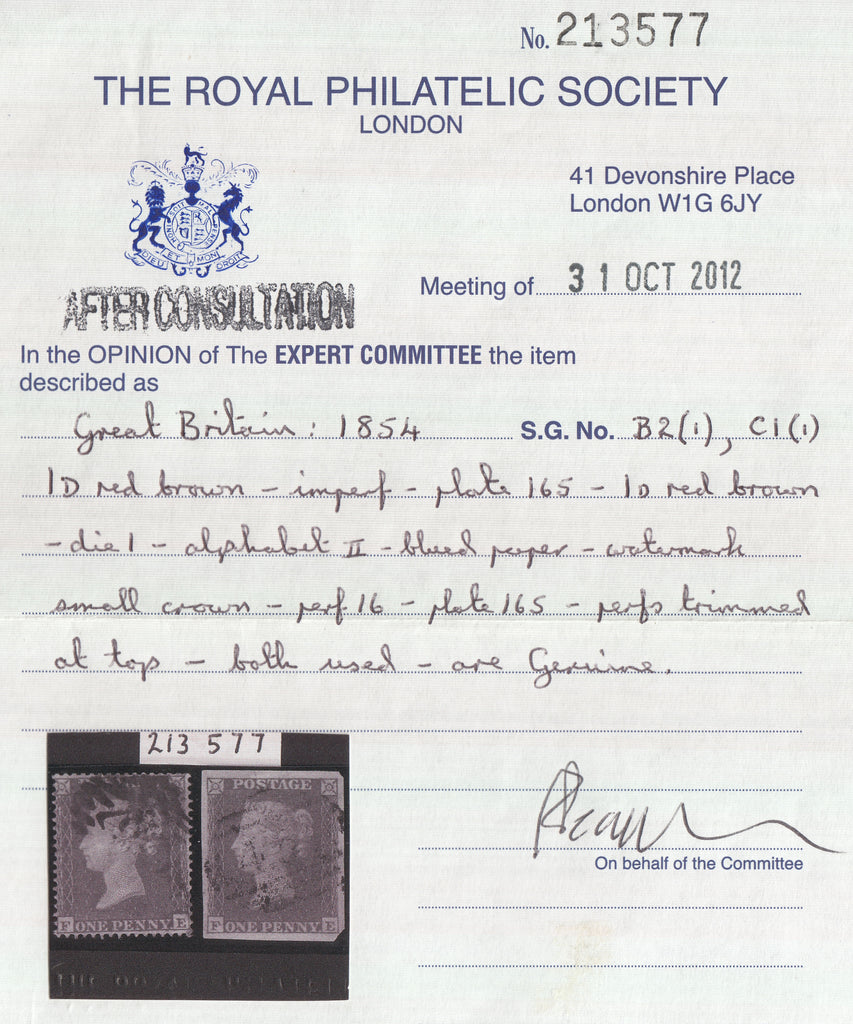 No. 213577
THE ROYAL PHILATELIC SOCIETY
LONDON
41 Devonshire Place
London W1G 6JY
DIEU ET MON DROIT
AFTER CONSULTATION
Meeting of 31 OCT 2012
In the OPINION of The EXPERT COMMITTEE the item
described as
Great Britain: 1854 S.G. No. B2(1), C1(1)
1D red brown - imperf - plate 165 - 1D red brown
- die 1 - alphabet II - blued paper - watermark
small crown - perf 16 - plate 165 - perfs trimmed
at top - both used - are Genuine.
213 577
POSTAGE
F ONE PENNY E
F ONE PENNY E
THE ROYAL PHILATELIC
On behalf of the Committee